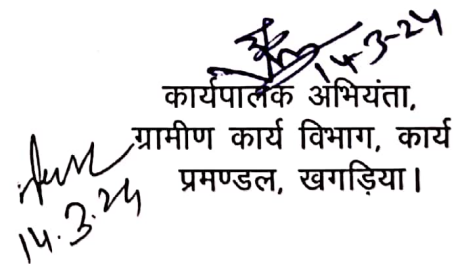 14-3-24
कार्यपालक अभियंता,
ग्रामीण कार्य विभाग, कार्य
प्रमण्डल, खगड़िया।
14.3.24